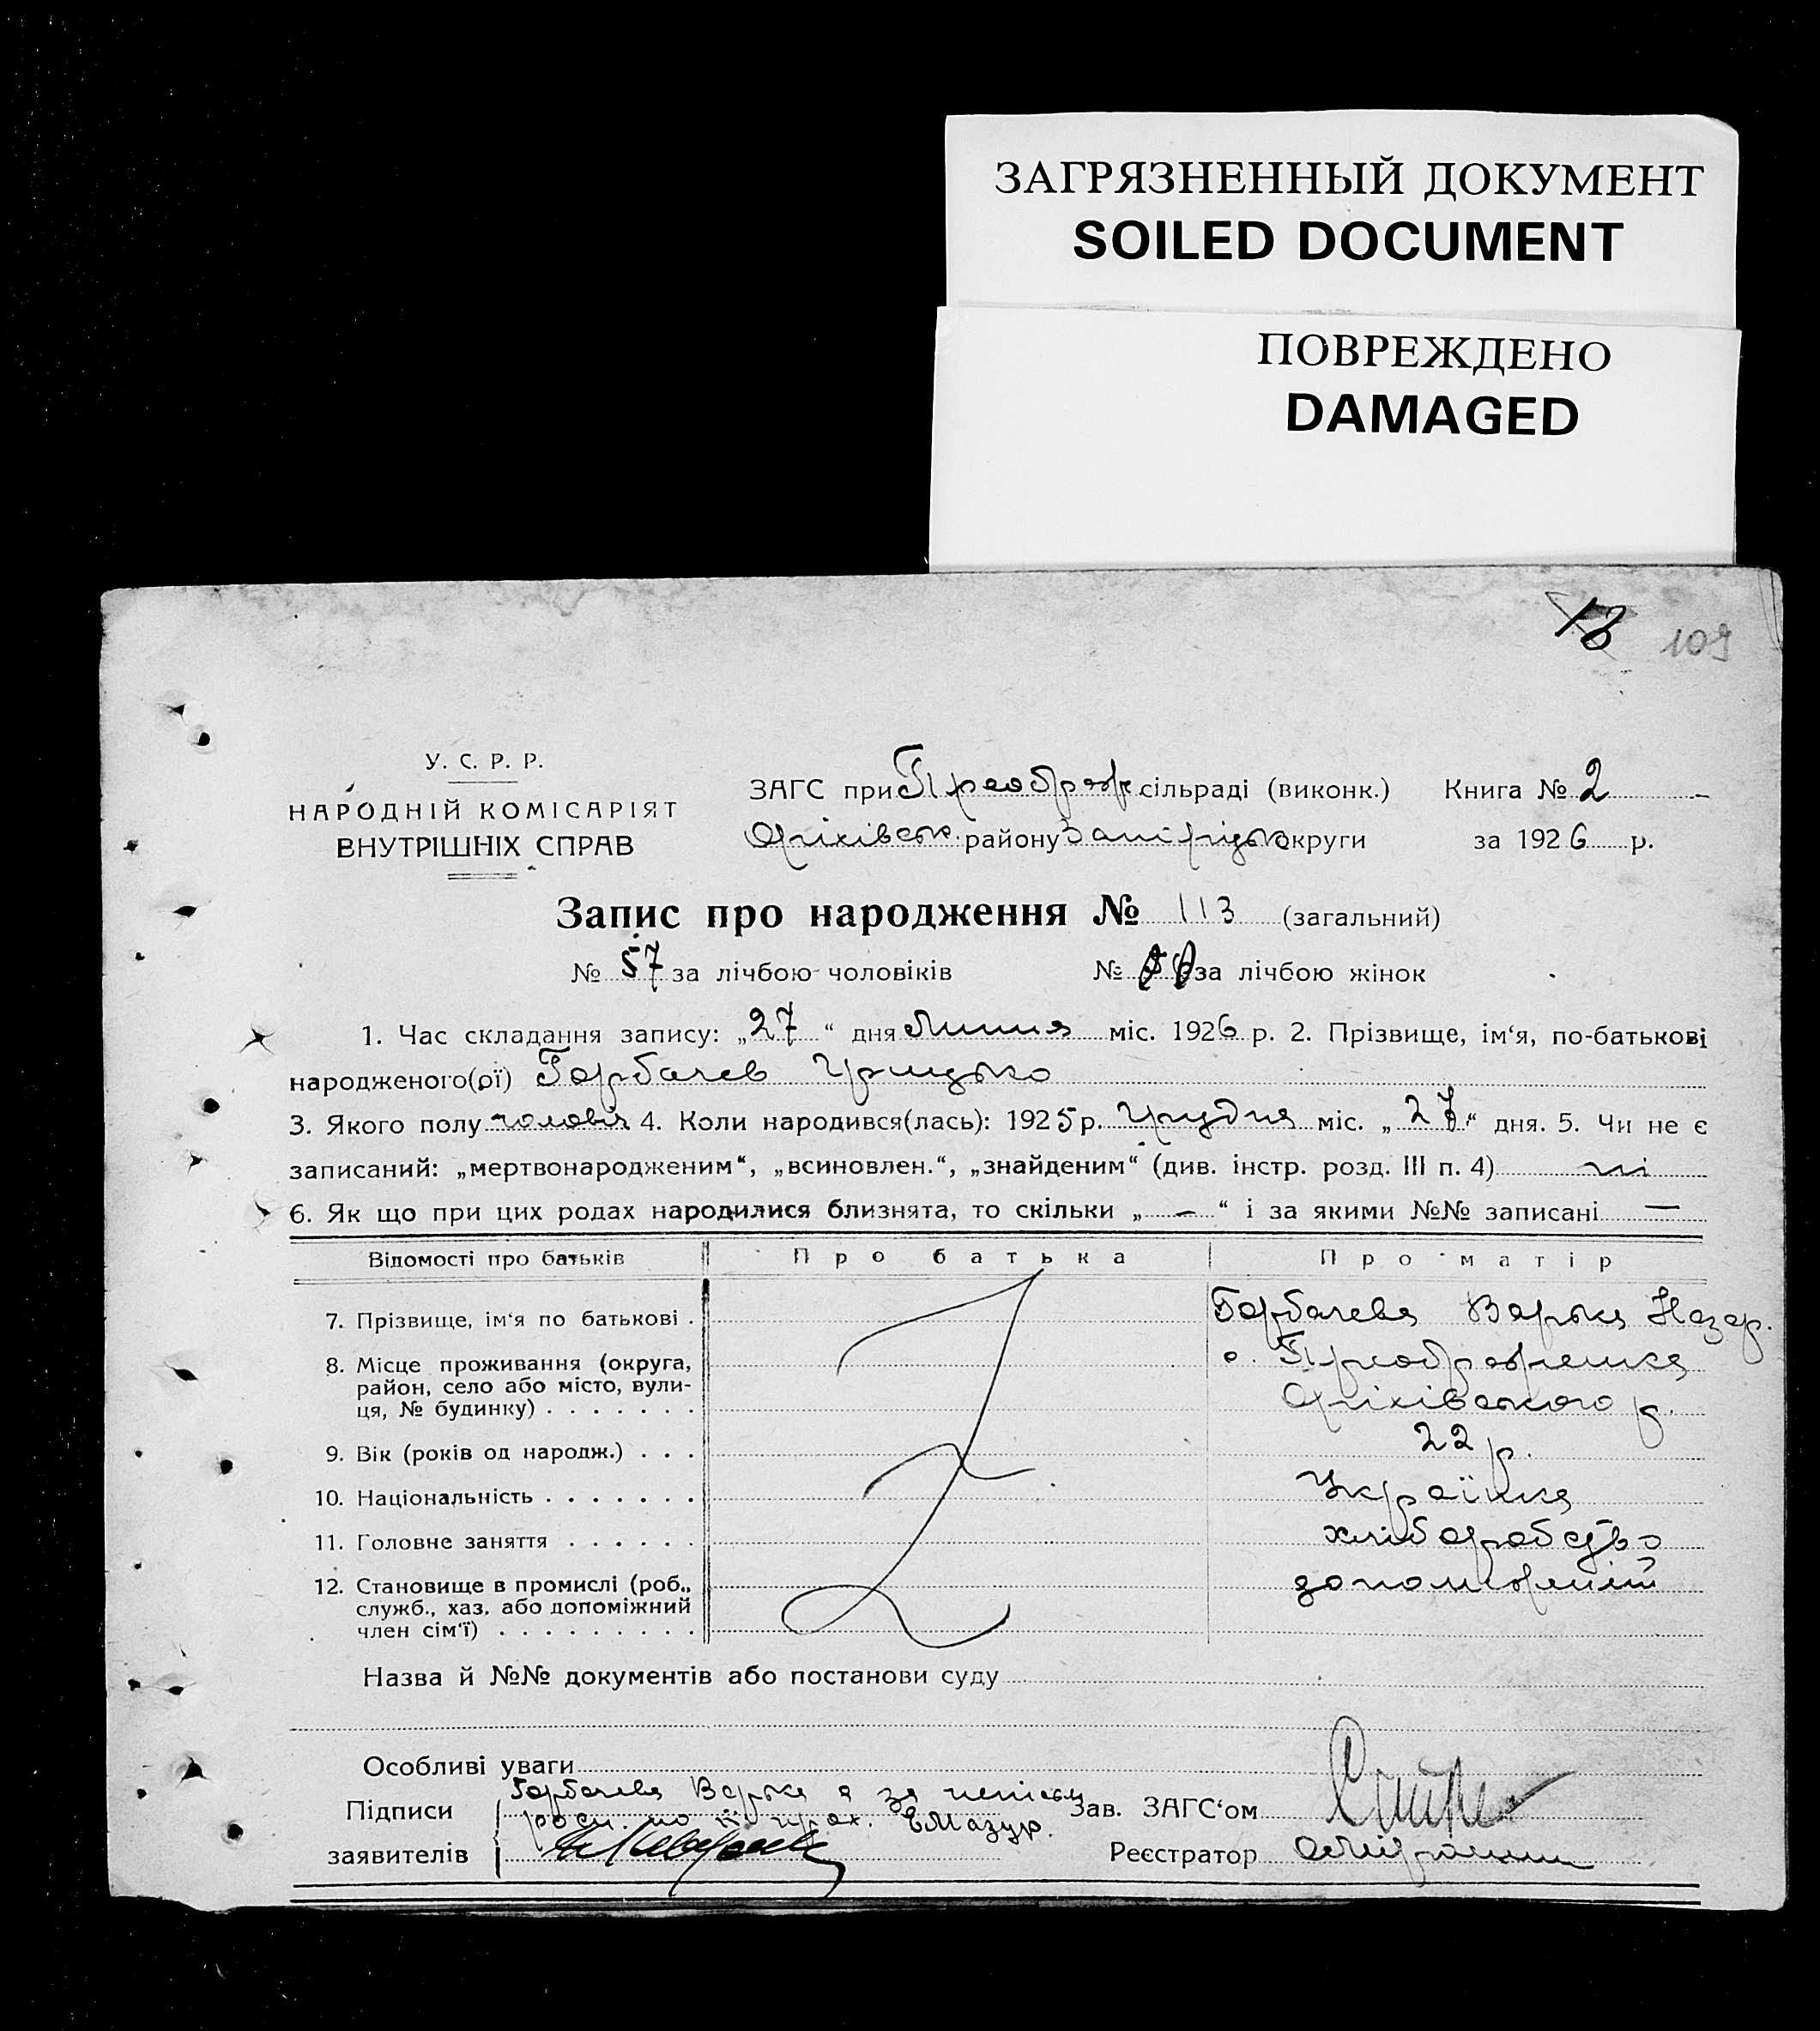 ЗАГРЯЗНЕННЫЙ ДОКУМЕНТ
SOILED DOCUMENT
ПОВРЕЖДЕНО
DAMAGED
13 109
У. С. Р. Р.
НАРОДНІЙ КОМІСАРІЯТ
ВНУТРІШНІХ СПРАВ
ЗАГС при Преображ. сільраді (виконк.) Книга № 2
Оріхівськ. району Запіріцьк округи за 1926 р.
Запис про народження № 113 (загальний)
№ 57 за лічбою чоловіків № за лічбою жінок
1. Час складання запису: „27“ дня Липня міс. 1926 р. 2. Прізвище, ім‘я, по-батькові
народженого(ої) Горбачев Грицько
3. Якого полу чоловіч 4. Коли народився(лась): 1925 р. Грудня міс. „27“ дня. 5. Чи не є
записаний: „мертвонародженим“, „всиновлен.“, „знайденим“ (див. інстр. розд. III п. 4) ні
6. Як що при цих родах народилися близнята, то скільки „—“ і за якими №№ записані —
Відомості про батьків Про батька Про матір
7. Прізвище, ім‘я по батькові . Горбачева Варька Назар.
8. Місце проживання (округа, с. Преображенка
район, село або місто, вули- Оріхівського р.
ця, № будинку) . . . . . . .
9. Вік (років од народж.) . . . 22 р.
10. Національність . . . . . . . Українка
11. Головне заняття . . . . . . хліборобство
12. Становище в промислі (роб., допоміжний
служб., хаз. або допоміжний
член сім‘ї) . . . . . . . . .
Назва й №№ документів або постанови суду
Особливі уваги
Горбачева Варька а за неписьм
Підписи розп. по її прох. Мазур. Зав. ЗАГС‘ом
заявителів Реєстратор